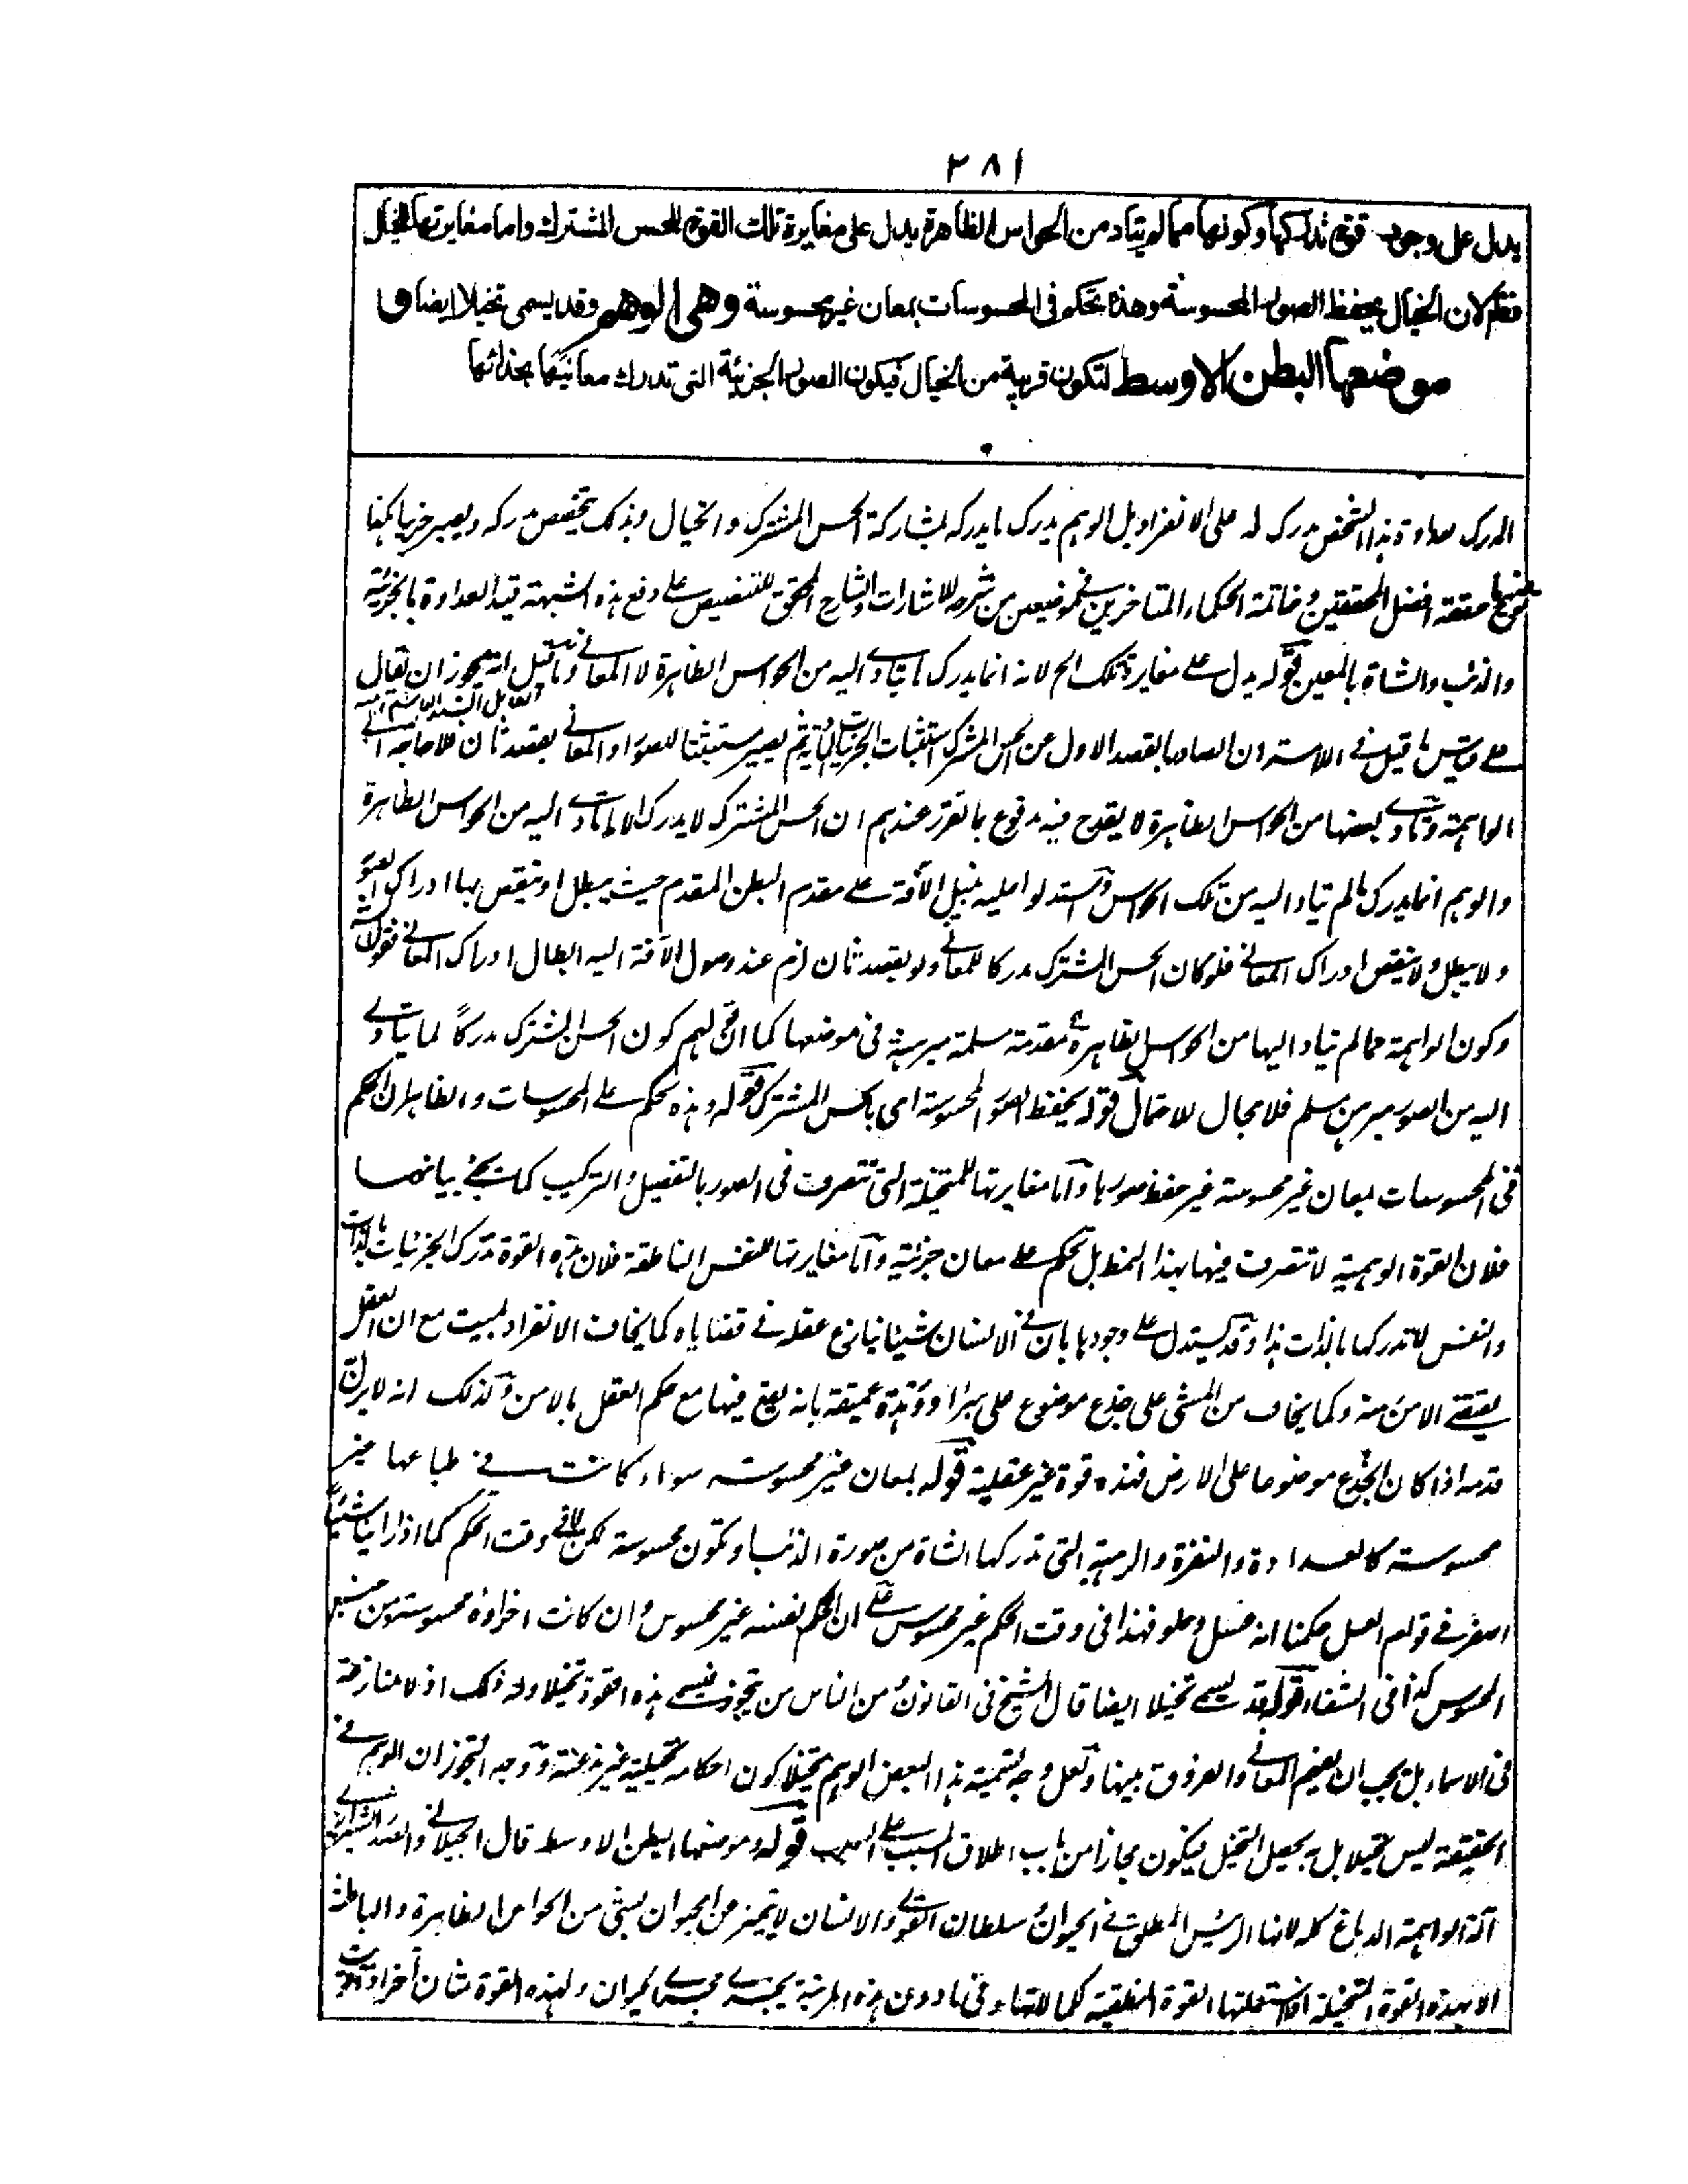 ٢٨١
يدل على وجود قوة تدركها وكونها مما لم يتاد من الحواس الظاهرة يدل على مغايرة تلك القوة للحس المشترك واما مغايرتها للخيال
فلان الخيال يحفظ الصور المحسوسة وهذه تحكم في المحسوسات بمعان غير محسوسة وهى الوهم وقد يسمى تخيلا ايضا و
موضعها البطن الاوسط لتكون قريبة من الخيال فيكون الصور الجزئية التى تدرك معانيها بحذائها
المدرك هذا الشخص مدرك له على الانفراد بل الوهم يدرك ما يدركه بمشاركة الحس المشترك والخيال وبذلك يتخصص مدركه ويصير جزئيا هكذا
حققه افضل المحققين وخاتمة الحكماء المتاخرين في موضعين من شرحه للاشارات والشارح المحقق للتنصيص على دفع هذه الشبهة قيد العداوة بالجزئية
والذئب والشاة بالمعين قوله يدل على مغايرة تلك الخ لانه انما يدرك ما يتادى اليه من الحواس الظاهرة لا المعاني وما قيل انه يجوز ان يقال
على قياس ما قيل في ان الصادر بالقصد الاول عن الحس المشترك استثبات ثم يصير مستثبتا للصور والمعاني بقصد ثان فلا حاجة الى
الواهمة وتادى بعضها من الحواس الظاهرة لا يقدح فيه مدفوع بما تقرر عندهم ان الحس المشترك لا يدرك الا ما يتادى اليه من الحواس الظاهرة
والوهم انما يدرك ما لم يتاد اليه من تلك الحواس واستدلوا عليه بنيل الآفة على مقدم البطن المقدم حيث يبطل او ينقص بها ادراك الصور
ولا يبطل ولا ينقص ادراك المعاني فلو كان الحس المشترك مدركا للمعاني ولو بقصد ثان لزم عند وصول الآفة اليه ابطال ادراك المعاني
وكون الواهمة مما لم يتاد اليها من الحواس الظاهرة مقدمة مسلمة مبرهنة في موضعها كما ان كون الحس المشترك مدركاً لما يتادى
اليه من الصور مبرهن مسلم فلا مجال للاحتمال قوله يحفظ الصور المحسوسة اى بالحس المشترك قوله وهذه تحكم على المحسوسات والظاهر ان الحكم
فى المحسوسات بمعان غير محسوسة غير حفظ صورها واما مغايرتها للمتخيلة التى تتصرف فى الصور بالتفصيل والتركيب كما يجئ بيانها
فلان القوة الوهمية لا تتصرف فيها بهذا النمط بل تحكم على معان جزئية واما مغايرتها للنفس الناطقة فلان هذه القوة تدرك الجزئيات بالذات
والنفس لا تدركها بالذات هذا وقد يستدل على وجودها بان في الانسان شيئا ينازع عقله في قضاياه كما يخاف الانفراد بميت مع ان العقل
يقتضى الامن منه وكما يخاف من المشى على جذع موضوع على عميقة بانه يقع فيها مع حكم العقل بالامن وكذلك انه لا يزل
قدمه اذا كان الجذع موضوعا على الارض فهذه قوة غير عقلية قوله بمعان غير محسوسة سواء كانت في طباعها غير
محسوسة كالعداوة والنفرة والرهبة التى تدركها الشاة من صورة الذئب او تكون محسوسة لكن لا في وقت الحكم كما اذا راينا شيئا
اصفر في قوام العسل حكمنا انه عسل وحلو فهذا فى وقت الحكم غير محسوس على ان الحكم نفسه غير محسوس وان كانت اجزاؤه محسوسة من جنس
المحسوس كذا فى الشفاء قوله وقد يسمى تخيلا ايضا قال الشيخ فى القانون ومن الناس من يتجوز فيسمى هذه القوة تخيلا وله ذلك اذ لا منازعة
فى الاسماء بل يجب ان يفهم المعاني والفروق بينها ولعل وجه تسمية هذا البعض الوهم تخيلا كون احكامه تخيلية ووجه التجوز ان الوهم في
الحقيقة ليس تخيلا بل به يحصل التخيل فيكون مجازا من باب اطلاق المسبب على السبب قوله وموضعها البطن الاوسط قال الجيلاني
آلة الواهمة الدماغ كله لانها الرئيس المطلق في الحيوان وسلطان القوى والانسان لا يتميز من الحيوان بشئ من الحواس الظاهرة والباطنة
الا بهذه القوة المتخيلة اذا استعملتها القوة النطقية كما للقدماء وفى ما دون هذه المرتبة يجرى مجرى الحيوان ولهذه القوة شان آخر